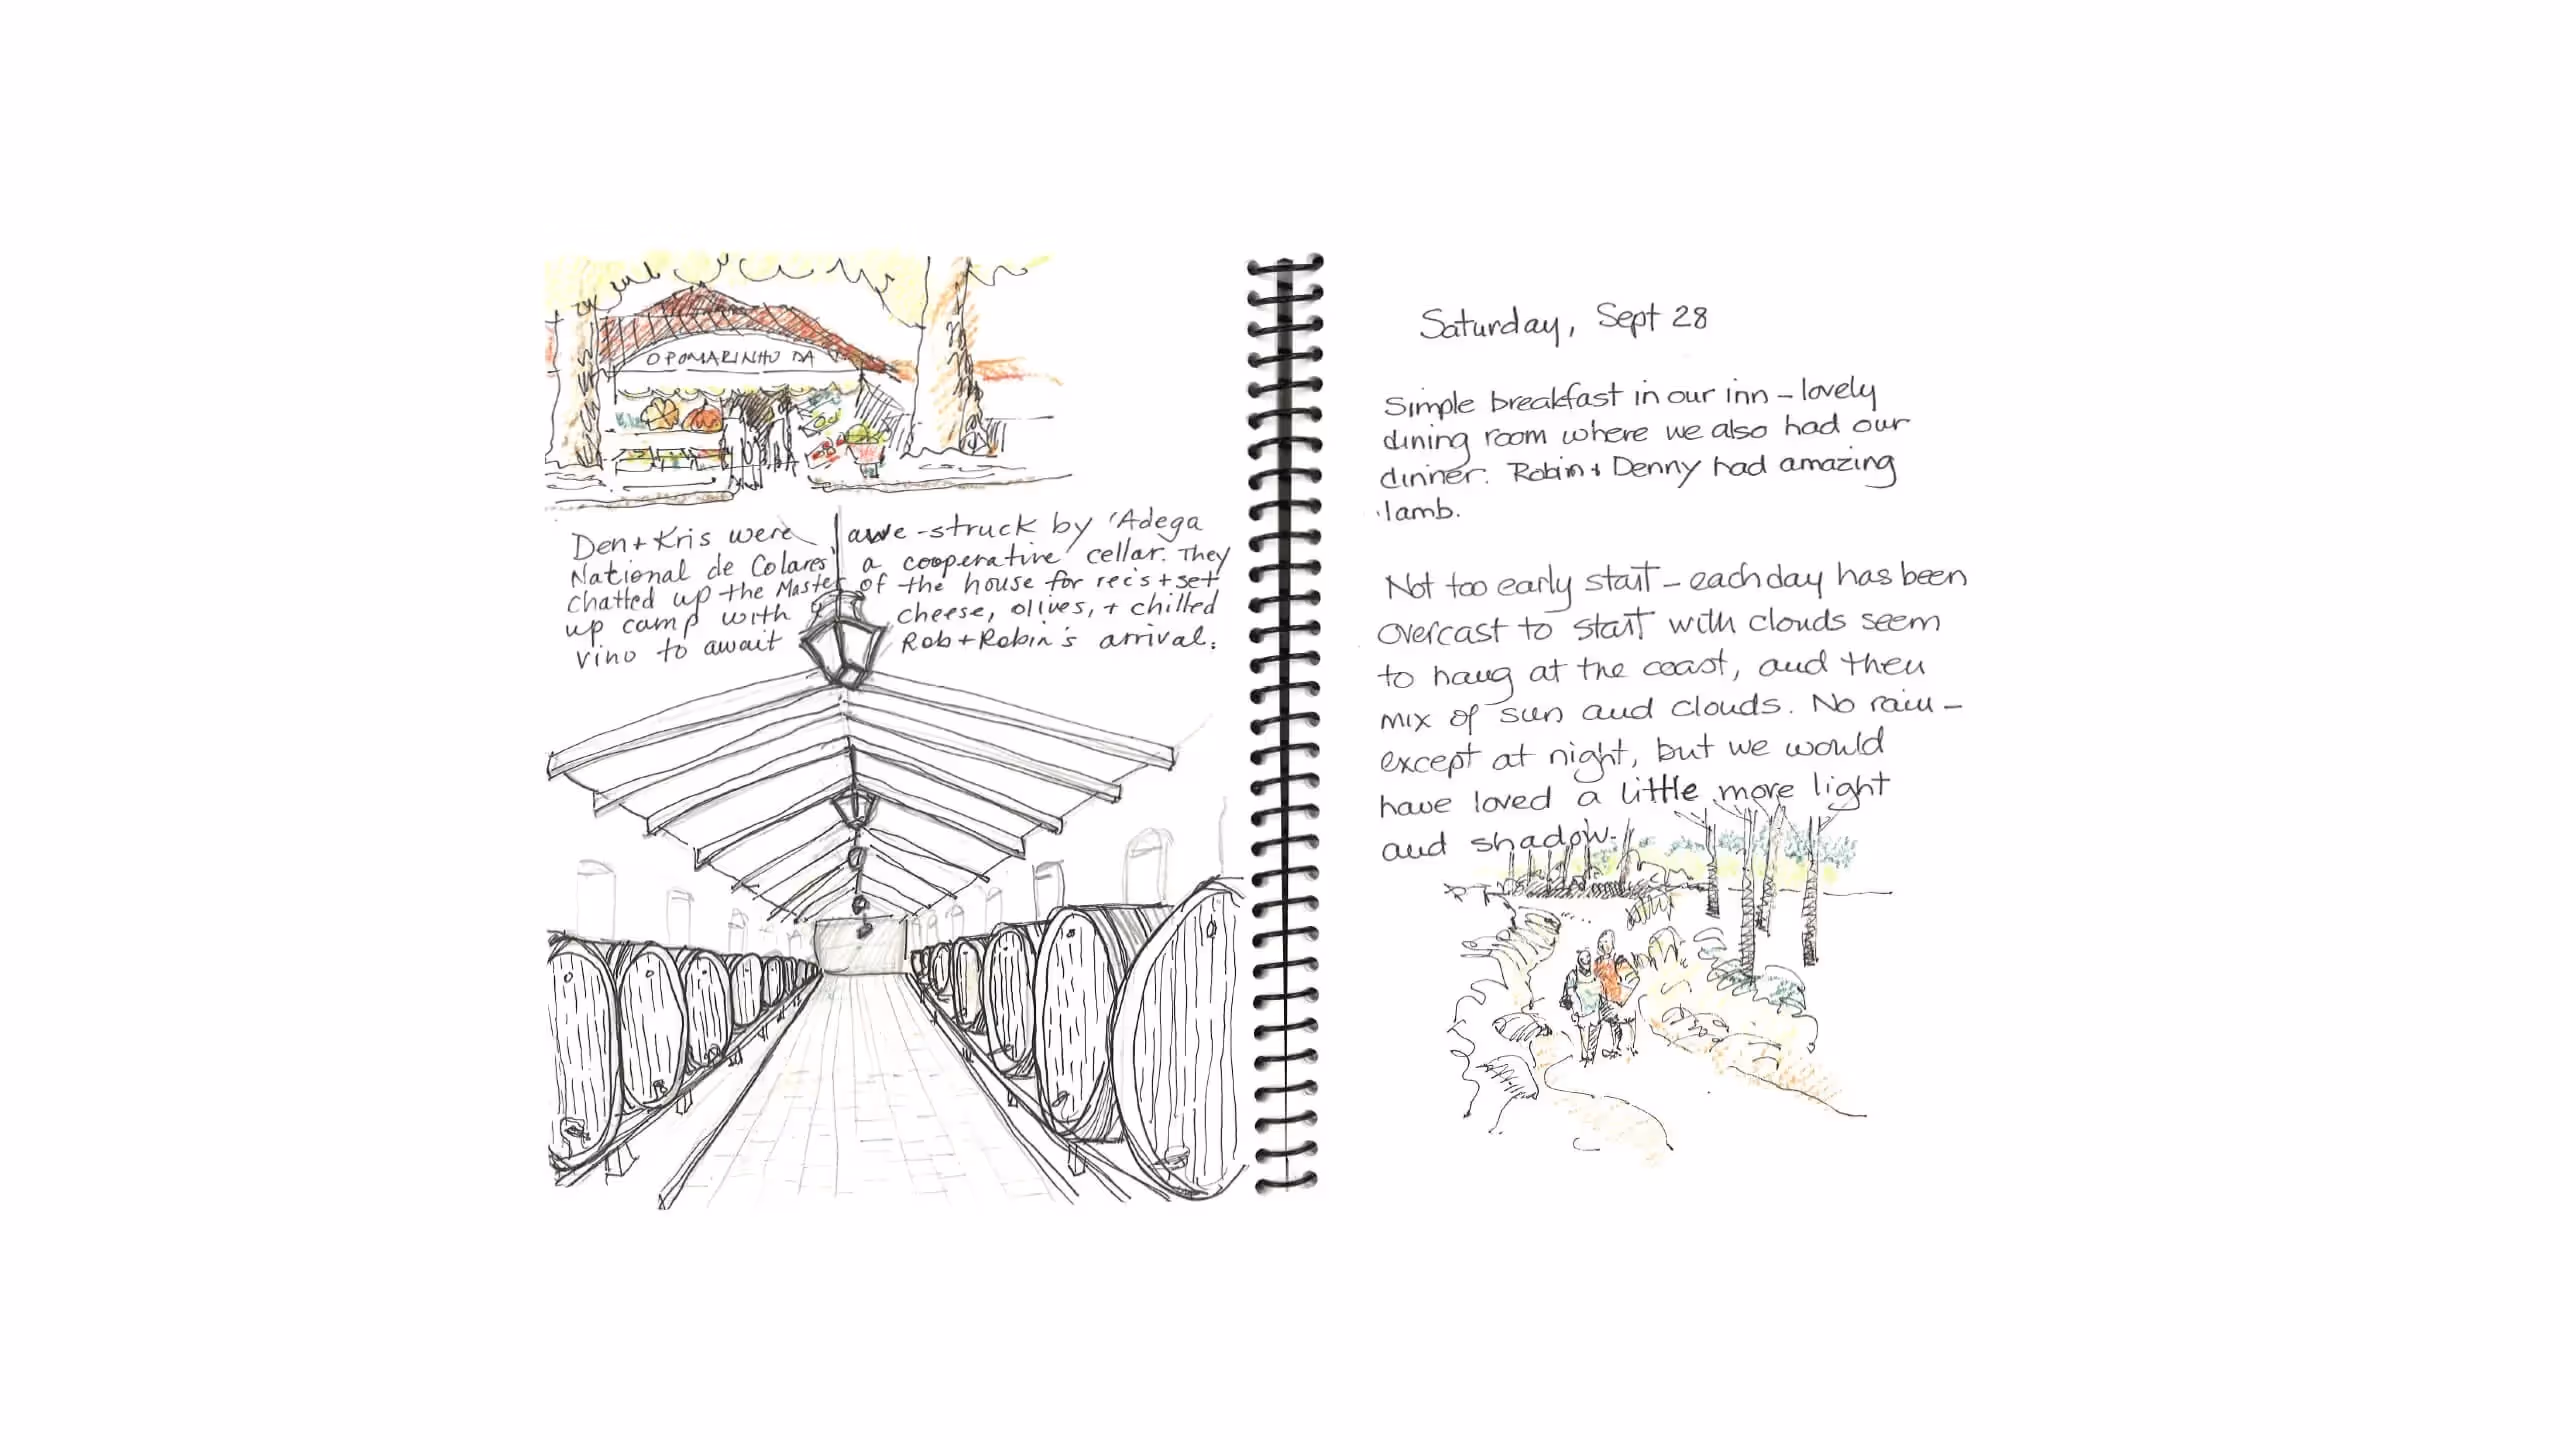 O POMARINHO DA
Den + Kris were awe-struck by 'Adega
National de Colares' a cooperative cellar. They
chatted up the Master of the house for rec's + set
up camp with cheese, olives, + chilled
vino to await Rob + Robin's arrival.
Saturday, Sept 28
Simple breakfast in our inn - lovely
dining room where we also had our
dinner. Robin + Denny had amazing
lamb.
Not too early start - each day has been
overcast to start with clouds seem
to hang at the coast, and then
mix of sun and clouds. No rain -
except at night, but we would
have loved a little more light
and shadow.